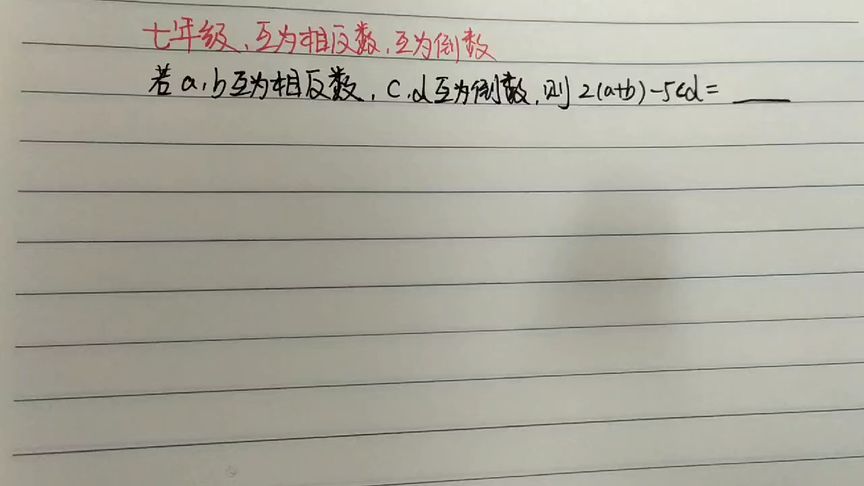 七年级、互为相反数,互为倒数
若a,b互为相反数,c,d互为倒数,则2(a+b)-5cd=____